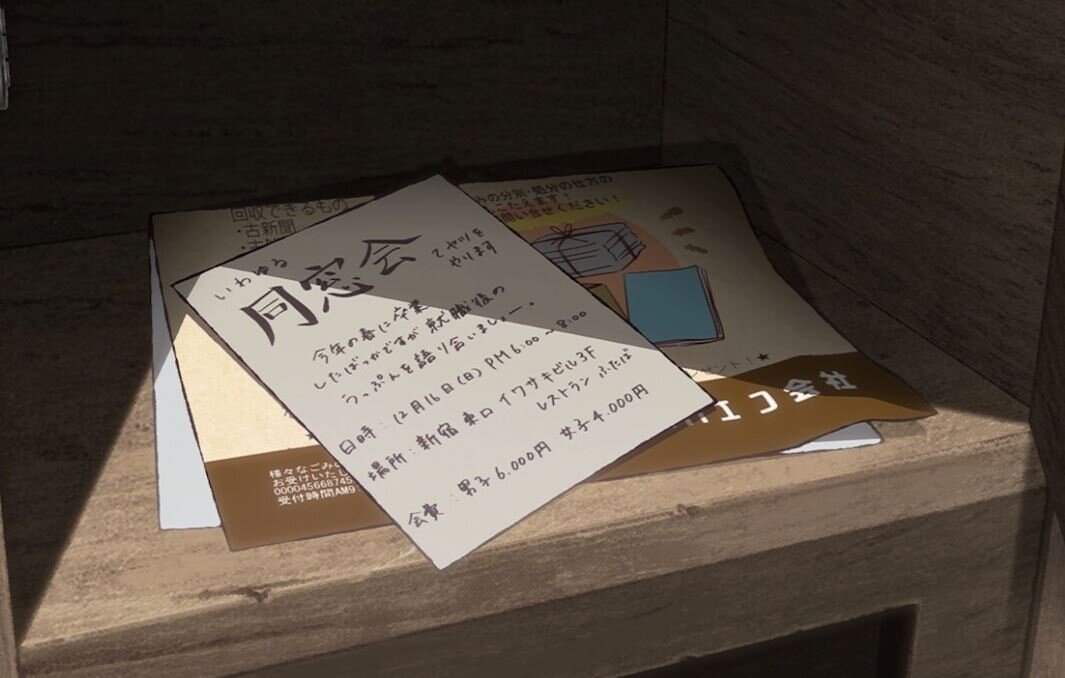 いわゆる
同窓会
てヤツを
やります
今年の春に卒業
したばっかですが就職後の
うっぷんを語り合いましょー.
日時：12月16日(日)PM6:00～8:00
場所：新宿東口イワサキビル3F
レストラン ふたば
会費：男子6.000円 女子4.000円
回収できるもの
・古新聞
みの分別・処分の仕方の
こたえます！
問い合せください！
ゼント！★
エコ会社
様々なごみ
お受けいたし
000045668745
受付時間AM9